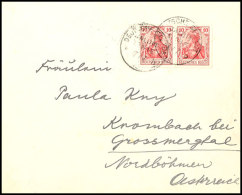 10 10
Fräulein
Paula Kny
Krombach bei
Grossmergthal
Nordböhmen
Oesterreich